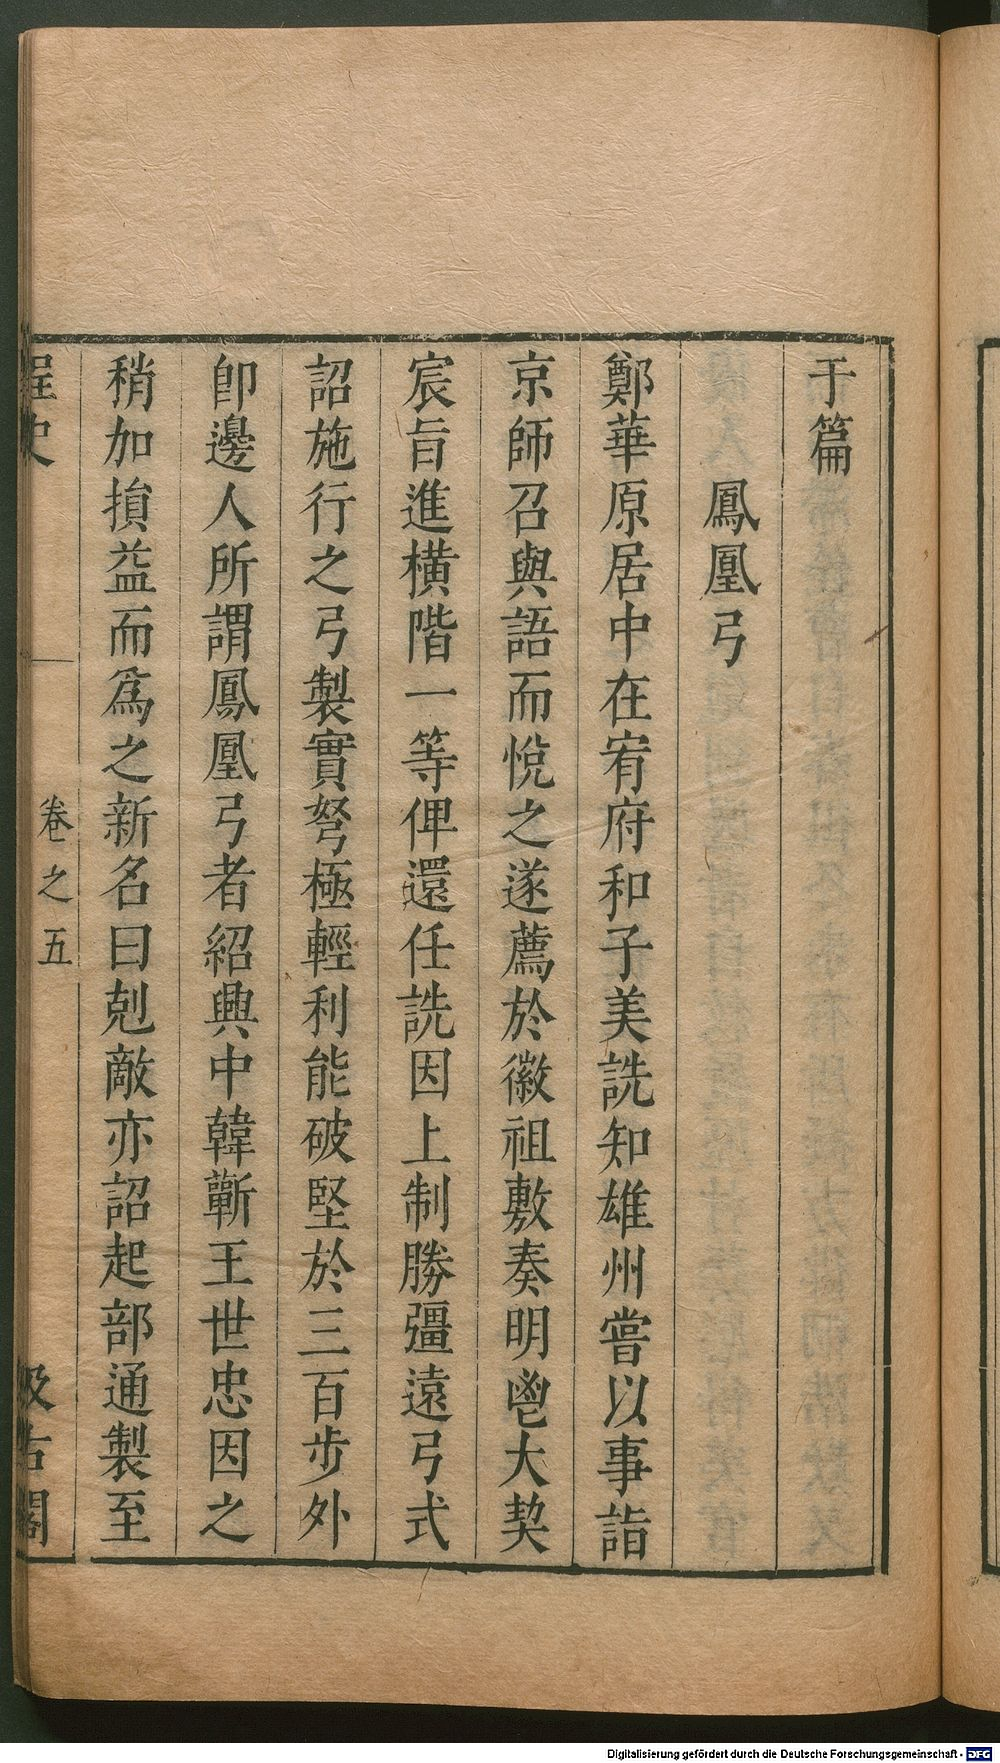 于篇
鳳凰弓
鄭華原居中在宥府和子美詵知雄州嘗以事詣
京師召與語而悅之遂薦於徽祖敷奏明鬯大契
宸旨進橫階一等俾還任詵因上制勝彊遠弓式
詔施行之弓製實弩極輕利能破堅於三百步外
卽邊人所謂鳳凰弓者紹興中韓蘄王世忠因之
稍加損益而爲之新名曰剋敵亦詔起部通製至
桯史
卷之五
汲古閣
Digitalisierung gefördert durch die Deutsche Forschungsgemeinschaft - DFG